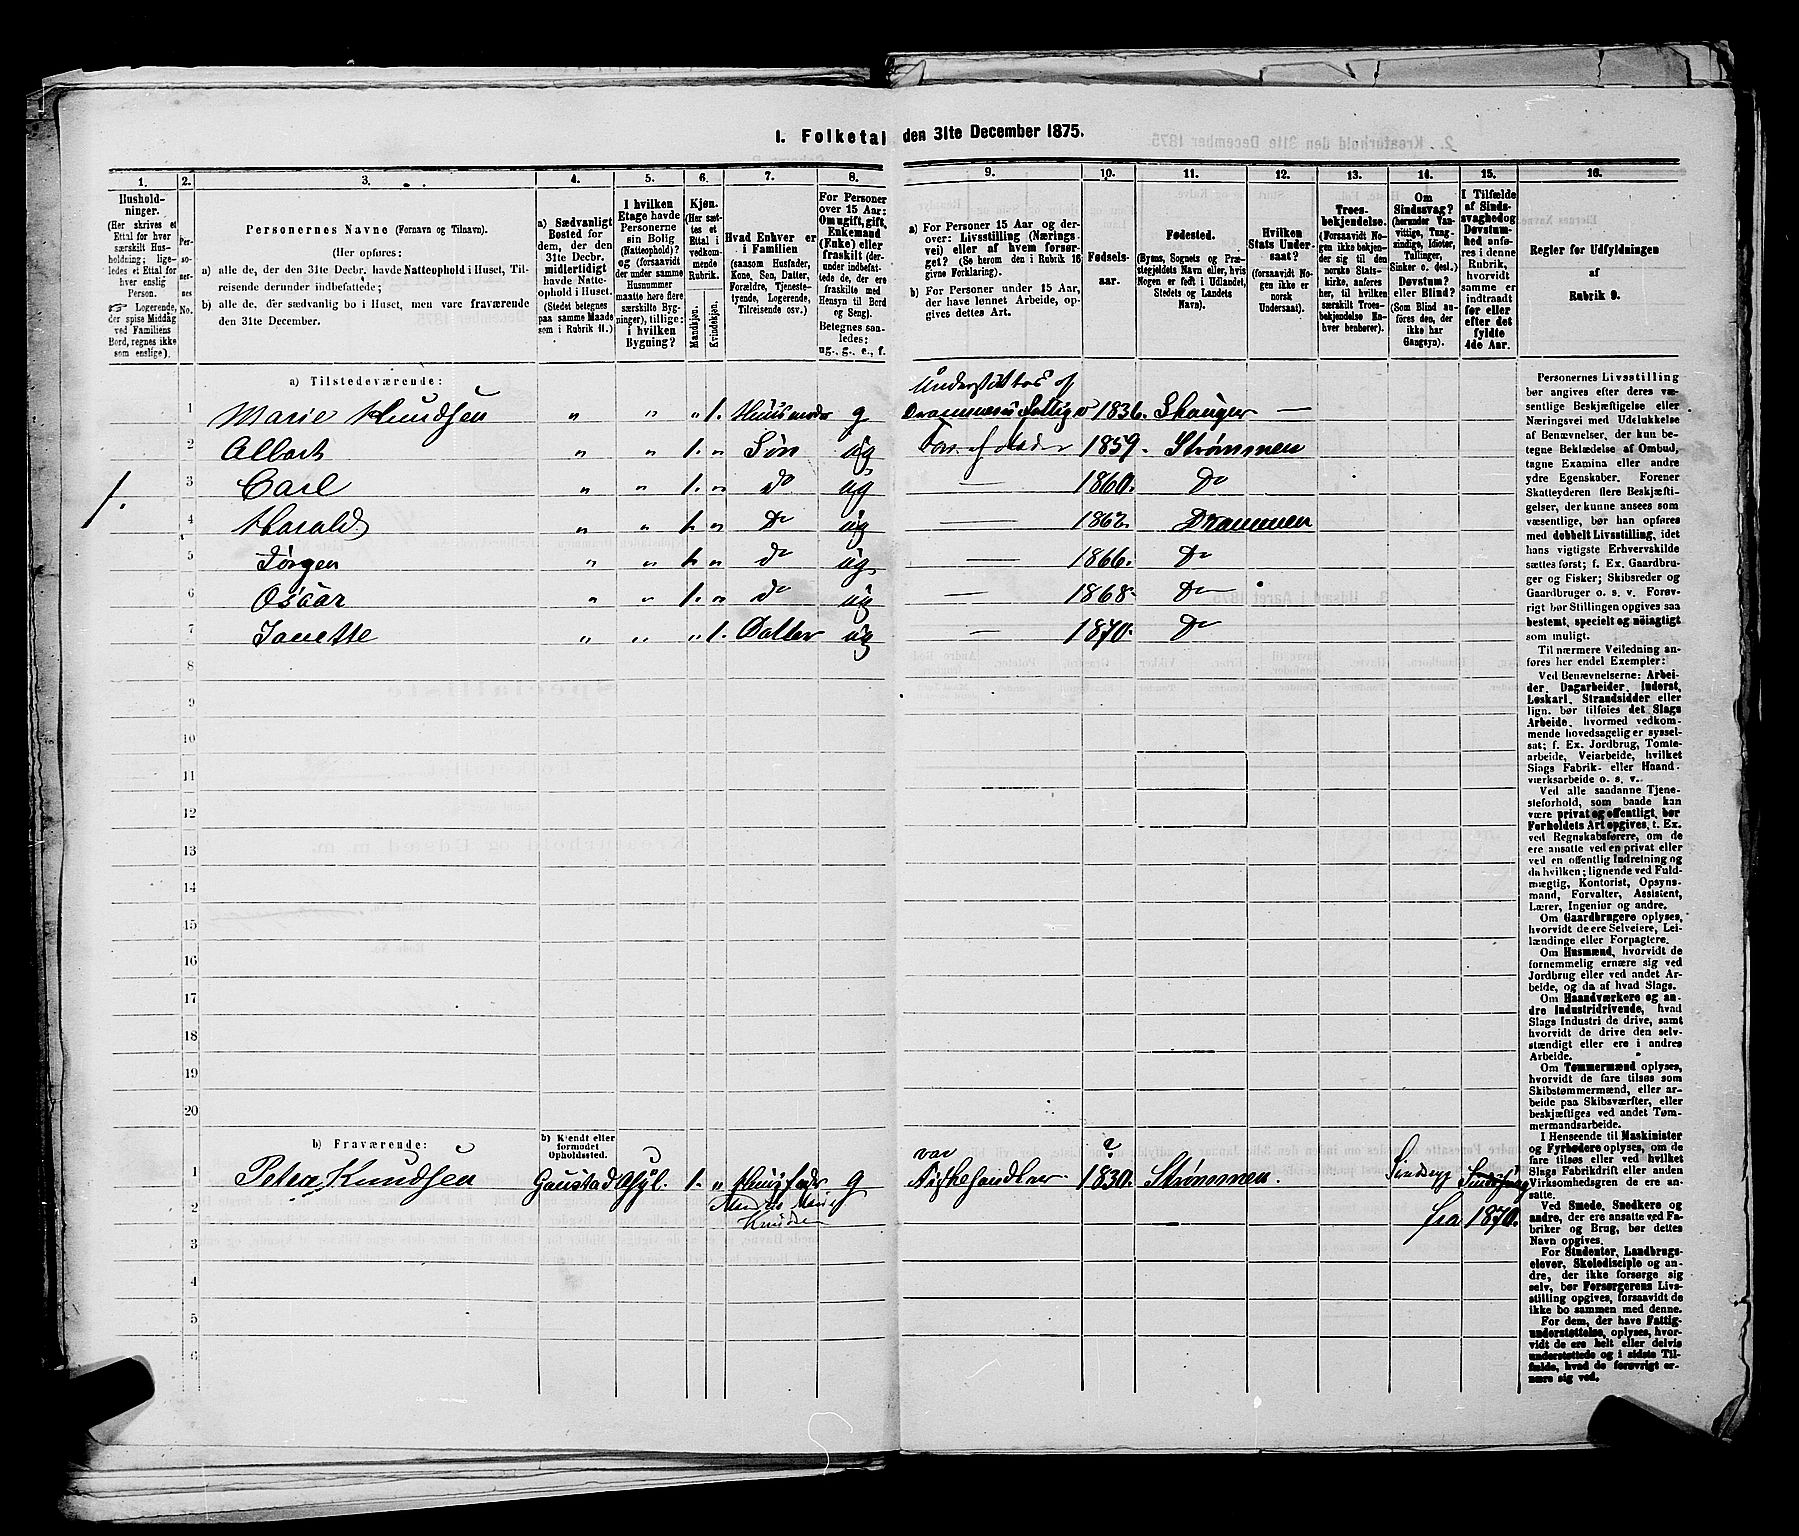 1. Folketal den 31te December 1875.
1. 2. 3. 4. 5. 6. 7. 8. 9. 10. 11. 12. 13. 14. 15. 16.
Hushold-
ninger.
(Her skrives et
Ettal for hver
særskilt Hus-
holdning; lige-
ledes et Ettal for
hver enslig
Person.
☞ Logerende,
der spise Middag
ved Familiens
Bord, regnes ikke
som enslige).
Per-
so-
ner-
nes
No.
Personernes Navne (Fornavn og Tilnavn).
(Her opføres:
a) alle de, der den 31te Decbr. havde Natteophold i Huset, Til-
reisende derunder indbefattede;
b) alle de, der sædvanlig bo i Huset, men vare fraværende
den 31te December.
a) Sædvanligt
Bosted for
dem, der den
31te Decbr.
midlertidigt
havde Natte-
ophold i Huset.
(Stedet betegnes
paa samme Maade
som i Rubrik 11.)
I hvilken
Etage havde
Personerne
sin Bolig
(Natteophold)?
og (forsaavidt
der under samme
Husnummer
maatte høre flere
særskilte Byg-
ninger), tillige:
i hvilken
Bygning?
Kjøn.
(Her sæt-
tes et
Ettal i
vedkom-
mende
Rubrik.
Mandkjøn.
Kvindekjøn.
Hvad Enhver er
i Familien
(saasom Husfader,
Kone, Søn, Datter,
Forældre, Tjeneste-
tyende, Logerende,
Tilreisende osv.)
For Personer
over 15 Aar:
Om ugift, gift,
Enkemand
(Enke) eller
fraskilt (der-
under indbefat-
tede de, der ere
fraskilte med
Hensyn til Bord
og Seng).
Betegnes saa-
ledes:
ug., g., e., f.
a) For Personer 15 Aar og der-
over: Livsstilling (Nærings-
vei) eller af hvem forsør-
get? (Se herom den i Rubrik 16
givne Forklaring).
b) For Personer under 15 Aar,
der have lønnet Arbeide, op-
gives dettes Art.
Fødsels-
aar.
Fødested.
(Byens, Sognets og Præ-
stegjeldets Navn eller, hvis
Nogen er født i Udlandet,
Stedets og Landets
Navn).
Hvilken
Stats Under-
saat?
(forsaavidt No-
gen ikke er
norsk
Undersaat).
Troes-
bekjendelse.
(Forsaavidt No-
gen ikke bekjen-
der sig til den
norske Stats-
kirke, anføres
her, til hvilken
særskilt Troes-
bekjendelse En-
hver henhører).
Om
Sindssvag?
(herunder Van-
vittige, Tung-
sindige, Idioter,
Sinker o. desl.)
Døvstum?
eller Blind?
(Som Blind an-
føres den, der
ikke har
Gangsyn).
I Tilfælde
af Sinds-
svaghed og
Døvstum-
hed anfø-
res i denne
Rubrik,
hvorvidt
samme er
indtraadt
før eller
efter det
fyldte
4de Aar.
Regler for Udfyldningen
af
Rubrik 9.
a) Tilstedeværende:
Understøttes af
1 Marie Knudsen " " " 1. Huusmoder g Drammens Fattigv 1836. Skauger —
2 Albert " " 1. " Søn ug Fors. af Moder 1859. Strømmen
1. 3 Carl " " 1. " do ug — 1860. Do
4 Harald " " 1. " Do ug — 1862. Drammen
5 Jørgen " " 1. " do ug — 1866. Do
6 Oscar " " 1. " do ug — 1868. Do
7 Janette " " " 1. Datter ug — 1870. Do
8
9
10
11
12
13
14
15
16
17
18
19
20
b) Fraværende:
b) Kjendt eller
formodet
Opholdssted.
var ?
1 Peter Knudsen Gaustad Asyl. 1. " Huusfader g Fiskehandler 1830. Strømmen. Sindssyg
2 Marie
Knudsen fra 1870.
3
4
5
6
Personernes Livsstilling
bør angives efter deres væ-
sentlige Beskjæftigelse eller
Næringsvei med Udelukkelse
af Benævnelser, der kun be-
tegne Beklædelse af Ombud,
tagne Examina eller andre
ydre Egenskaber. Forener
Skatteyderen flere Beskjæfti-
gelser, der kunne ansees som
væsentlige, bør han opføres
med dobbelt Livsstilling, idet
hans vigtigste Erhvervskilde
sættes først; f. Ex. Gaardbru-
ger og Fisker; Skibsreder og
Gaardbruger o. s. v. Forøv-
rigt bør Stillingen opgives saa
bestemt, specielt og nøiagtigt
som muligt.
Til nærmere Veiledning an-
føres her endel Exempler:
Ved Benævnelserne: Arbei-
der, Dagarbeider, Inderst,
Løskarl, Strandsidder eller
lign. bør tilføies det Slags
Arbeide, hvormed vedkom-
mende hovedsagelig er syssel-
sat; f. Ex. Jordbrug, Tomte-
arbeide, Veiarbeide, hvilket
Slags Fabrik- eller Haand-
værksarbeide o. s. v.
Ved alle saadanne Tjene-
steforhold, som baade kan
være privat og offentligt, bør
Forholdets Art opgives, t. Ex.
ved Regnskabsførere, om de
ere ansatte ved en privat eller
ved en offentlig Indretning og
da hvilken; lignende ved Fuld-
mægtig, Kontorist, Opsyns-
mand, Forvalter, Assistent,
Lærer, Ingeniør og andre.
Om Gaardbrugere oplyses,
hvorvidt de ere Selveiere, Lei-
lændinge eller Forpagtere.
Om Husmænd, hvorvidt de
fornemmelig ernære sig ved
Jordbrug eller ved andet Ar-
beide, og da af hvad Slags.
Om Haandværkere og an-
dre Industridrivende, hvad
Slags Industri de drive, samt
hvorvidt de drive den selv-
stændigt eller ere i andres
Arbeide.
Om Tømmermænd oplyses,
hvorvidt de fare tilsøs som
Skibstømmermænd, eller ar-
beide paa Skibsværfter, eller
beskjæftiges ved andet Tøm-
mermandsarbeide.
I Henseende til Maskinister
og Fyrbødere oplyses, om de
fare tilsøs eller ved hvilket
Slags Fabrikdrift eller anden
Virksomhedsgren de ere an-
satte.
Ved Smede, Snedkere og
andre, der ere ansatte ved Fa-
briker og Brug, bør dettes
Navn opgives.
For Studenter, Landbrugs-
elever, Skoledisciple og an-
dre, der ikke forsørge sig
selv, bør Forsørgerens Livs-
stilling opgives, forsaavidt de
ikke bo sammen med denne.
For dem, der have Fattig-
understøttelse, oplyses, hvor-
vidt de ere helt eller delvis
understøttede og i sidste Til-
fælde, hvad de forøvrigt er-
nære sig ved.